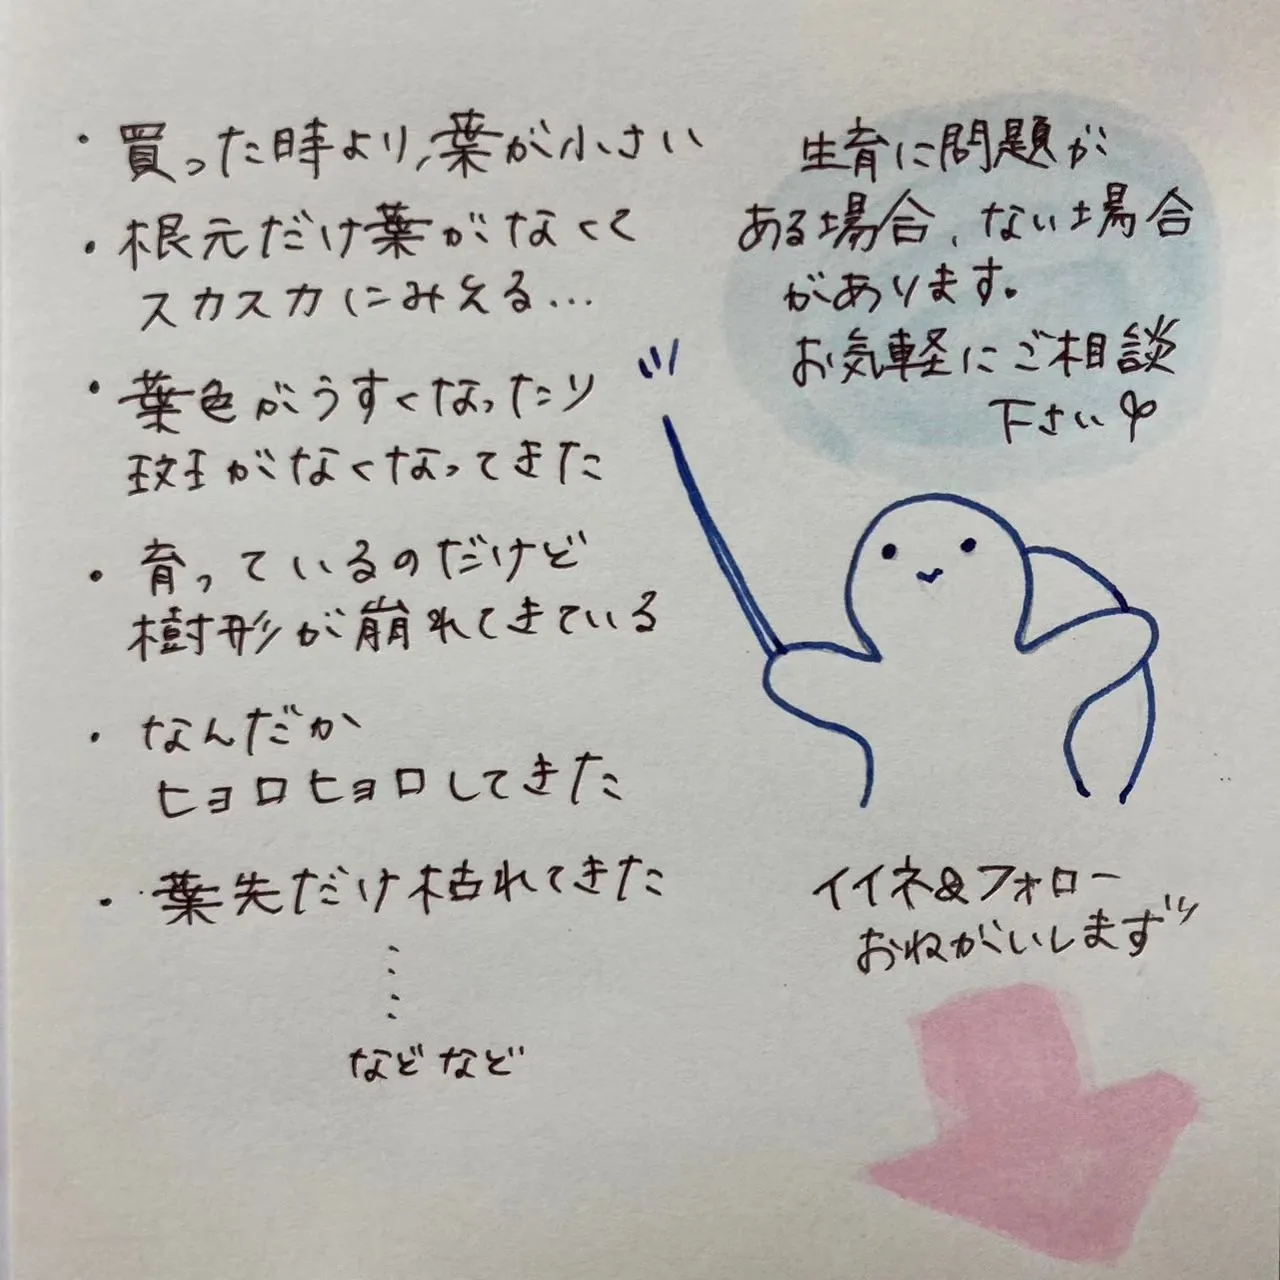 ・買った時より、葉が小さい
・根元だけ葉がなくて
スカスカにみえる…
・葉色がうすくなったり
斑がなくなってきた
・育っているのだけど
樹形が崩れてきている
・なんだか
ヒョロヒョロしてきた
・葉先だけ枯れてきた
などなど
生育に問題が
ある場合、ない場合
があります。
お気軽にご相談
下さい
イイネ&フォロー
おねがいします